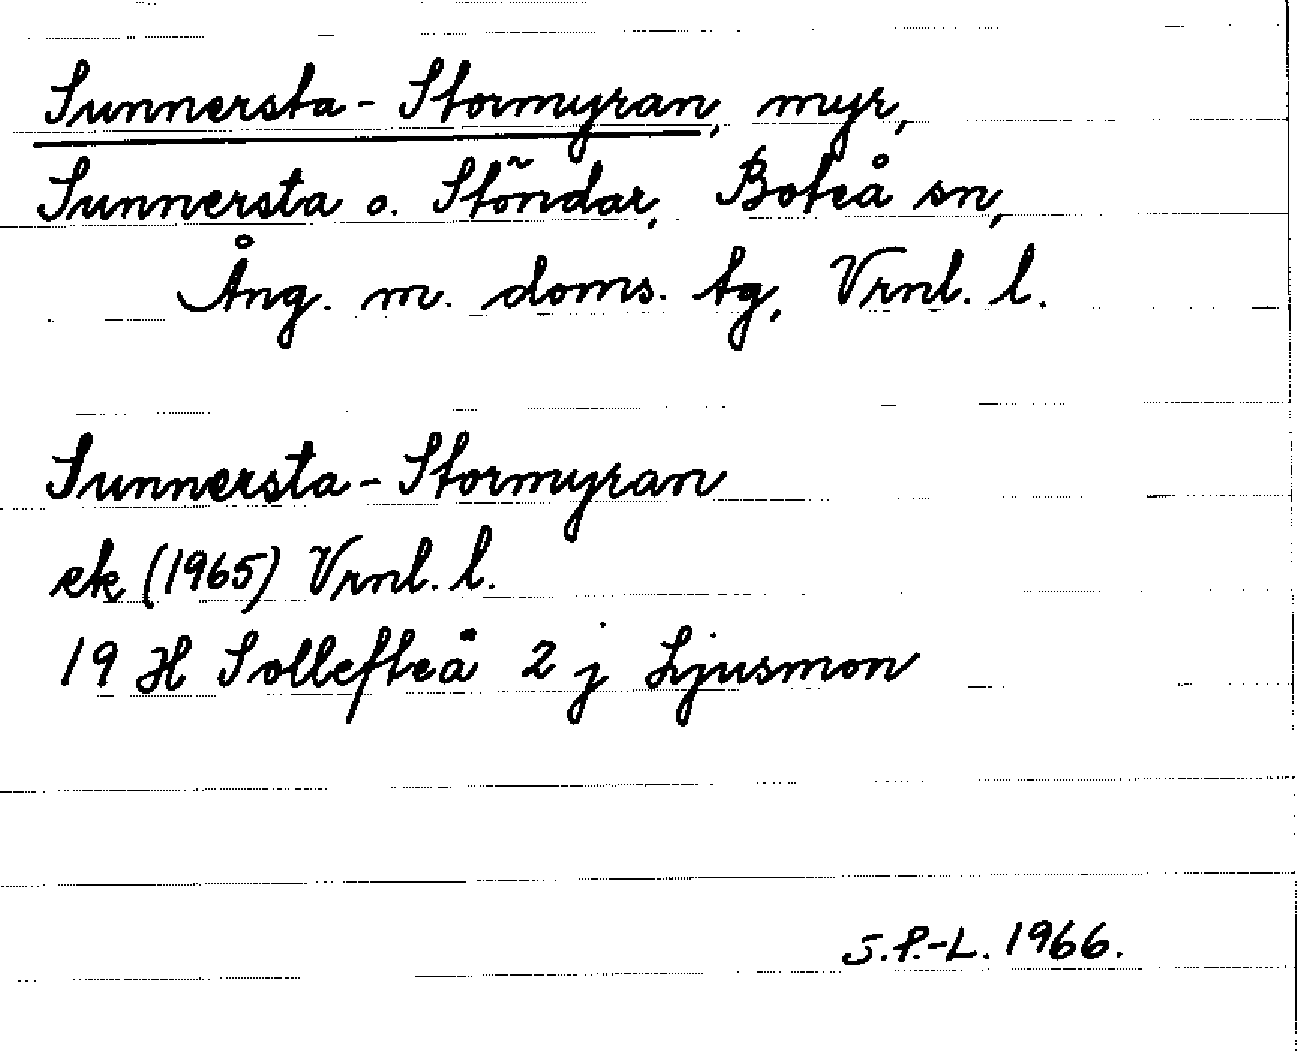 Sunnersta-Stormyran, myr,
Sunnersta o. Stöndar, Boteå sn,
Ång. m. doms. tg, Vrnl. l.
Sunnersta-Stormyran
ek (1965) Vrnl. l.
19 H Sollefteå 2 j Ljusmon
S.P.-L. 1966.